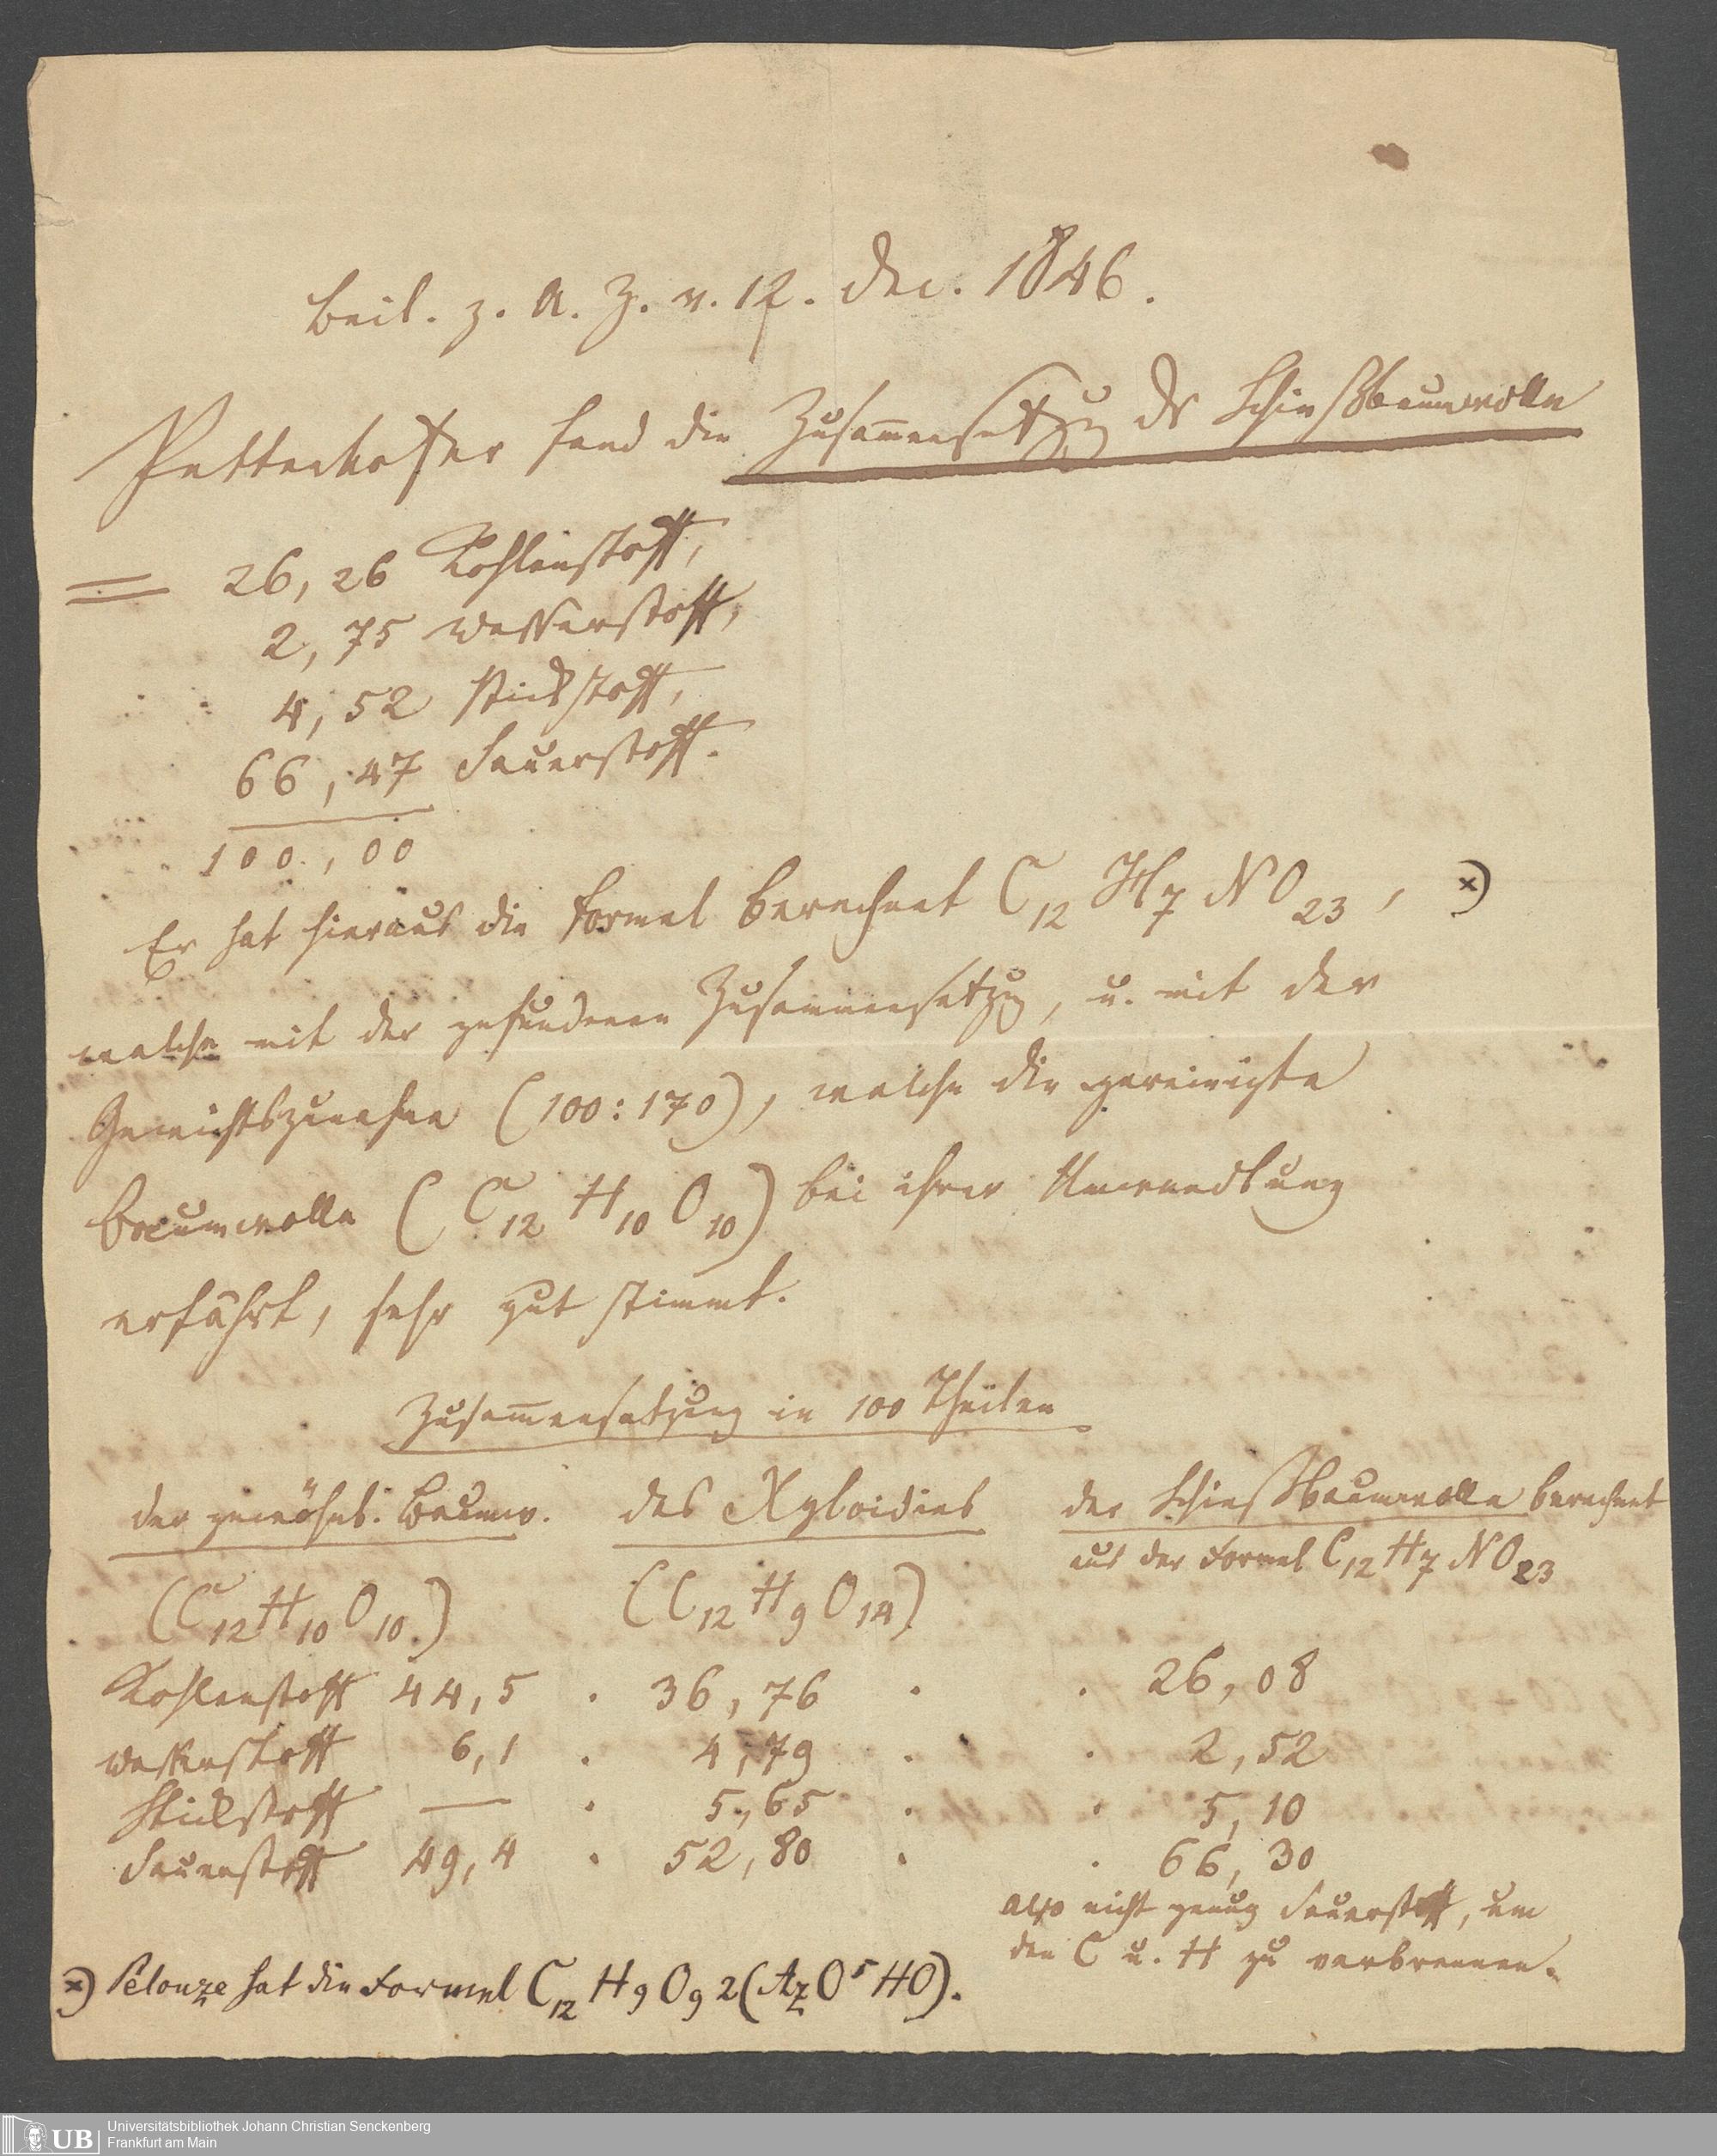 Beil. z. A. Z. v. 12. Dec. 1846.
Pettenkofer fand die Zusam̅ensetzg der Schießbaumwolle
= 26,26 Kohlenstoff,
2,75 Wasserstoff,
4,52 Stickstoff,
66,47 Sauerstoff.
100,00
Er hat hieraus die Formel berechnet C12 H7 NO23, ×)
welche mit der gefundenen Zusammensetzg, u. mit der
Gewichtszunahme (100:170), welche die gereinigte
Baumwolle (C12 H10 O10) bei ihrer Umwandlung
erfährt, sehr gut stimmt.
Zusam̅ensetzung in 100 Theilen
der gewöhnl. Baumw. des Xyloidins der Schießbaumwolle berechnet
aus der Formel C12 H7 NO23
(C12 H10 O10) (C12 H9 O14)
Kohlenstoff 44,5 . 36,76 . . 26,08
Wasserstoff 6,1 . 4,79 . . 2,52
Stickstoff — . 5,65 . . 5,10
Sauerstoff 49,4 . 52,80 . . 66,30
Also nicht genug Sauerstoff, um
den C u. H zu verbrennen.
×) Pelouze hat die Formel C12 H9 O9 2(AzO5 HO).
UB Universitätsbibliothek Johann Christian Senckenberg
Frankfurt am Main